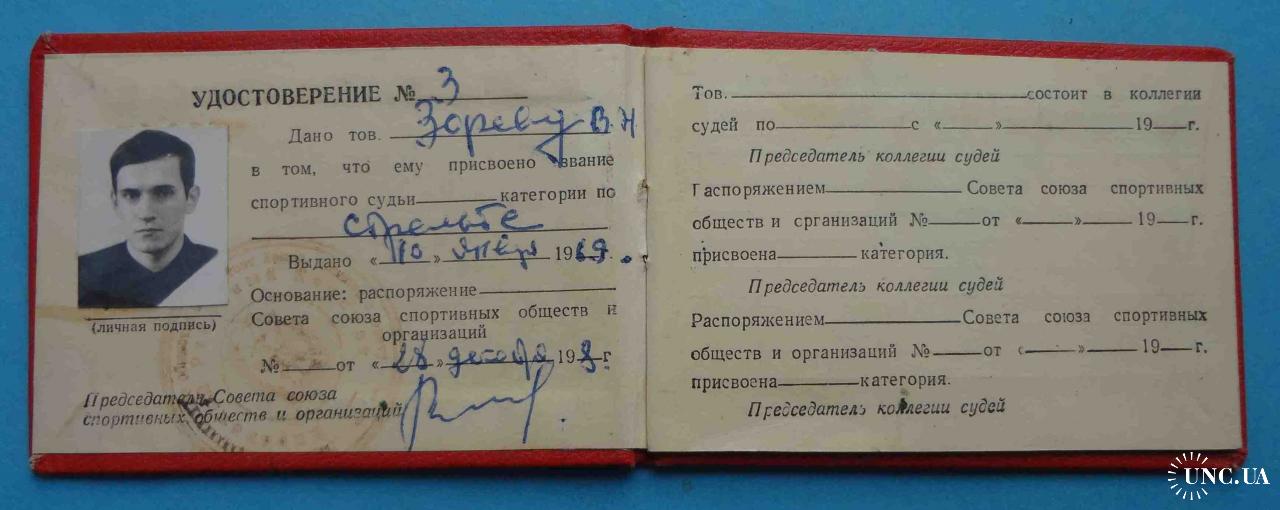 УДОСТОВЕРЕНИЕ № 3
Дано тов. Зореву В Н
в том, что ему присвоено звание
спортивного судьи категории по
стрельбе
Выдано « 10 » 1969.
(личная подпись)
Основание: распоряжение
Совета союза спортивных обществ и
организаций
№ от « 28 » 196 г
Председатель Совета союза
спортивных обществ и организаций
Тов. состоит в коллегии
судей по с « » 19 г.
Председатель коллегии судей
Распоряжением Совета союза спортивных
обществ и организаций № от « » 19 г.
присвоена категория.
Председатель коллегии судей
Распоряжением Совета союза спортивных
обществ и организаций № от « » 19 г.
присвоена категория.
Председатель коллегии судей
UNC.UA